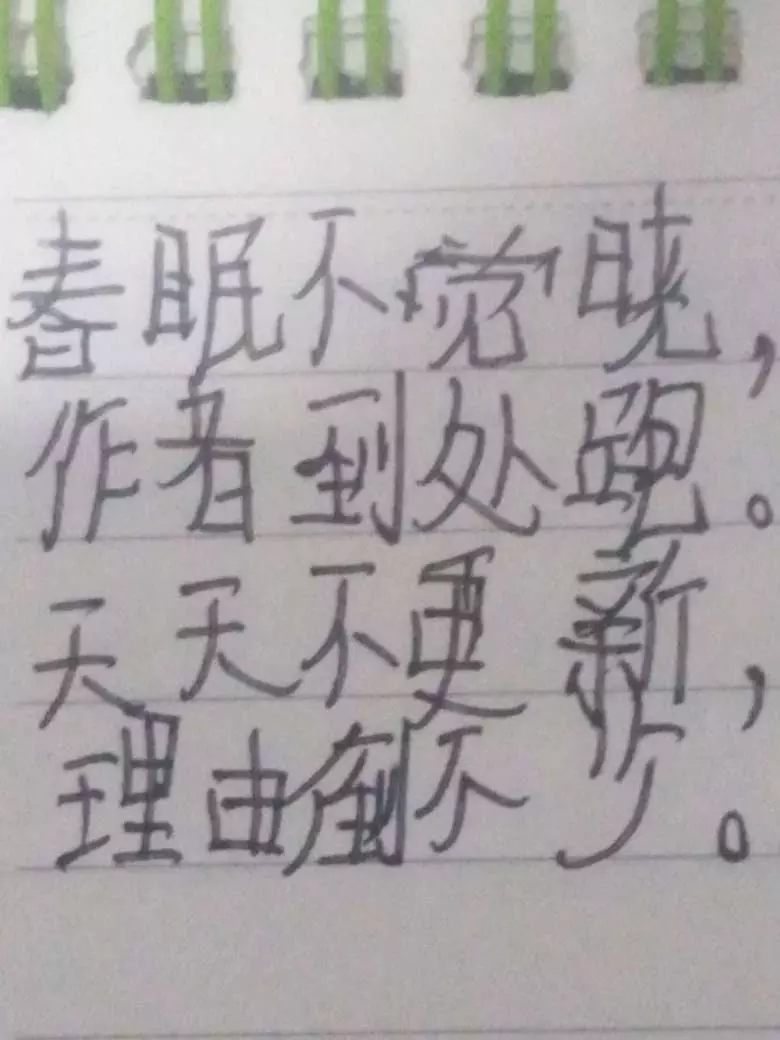 春眠不觉晓，
作者到处跑。
天天不更新，
理由倒不少。